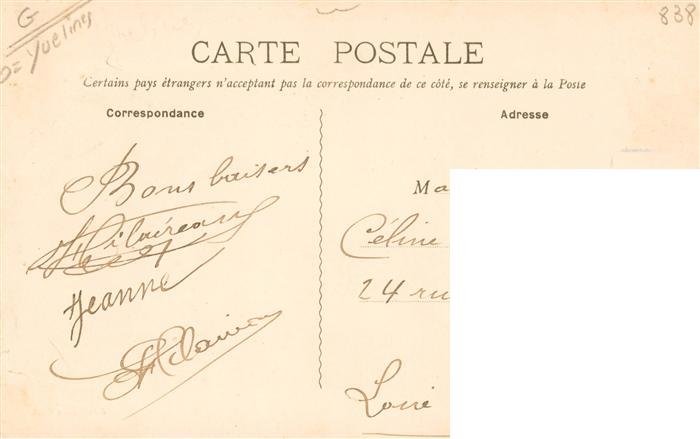 G
D = Yvelines
838
CARTE POSTALE
Certains pays étrangers n'acceptant pas la correspondance de ce côté, se renseigner à la Poste
Correspondance
Adresse
Bons baisers
Jeanne
Ma
Céline
24 ru
Loire